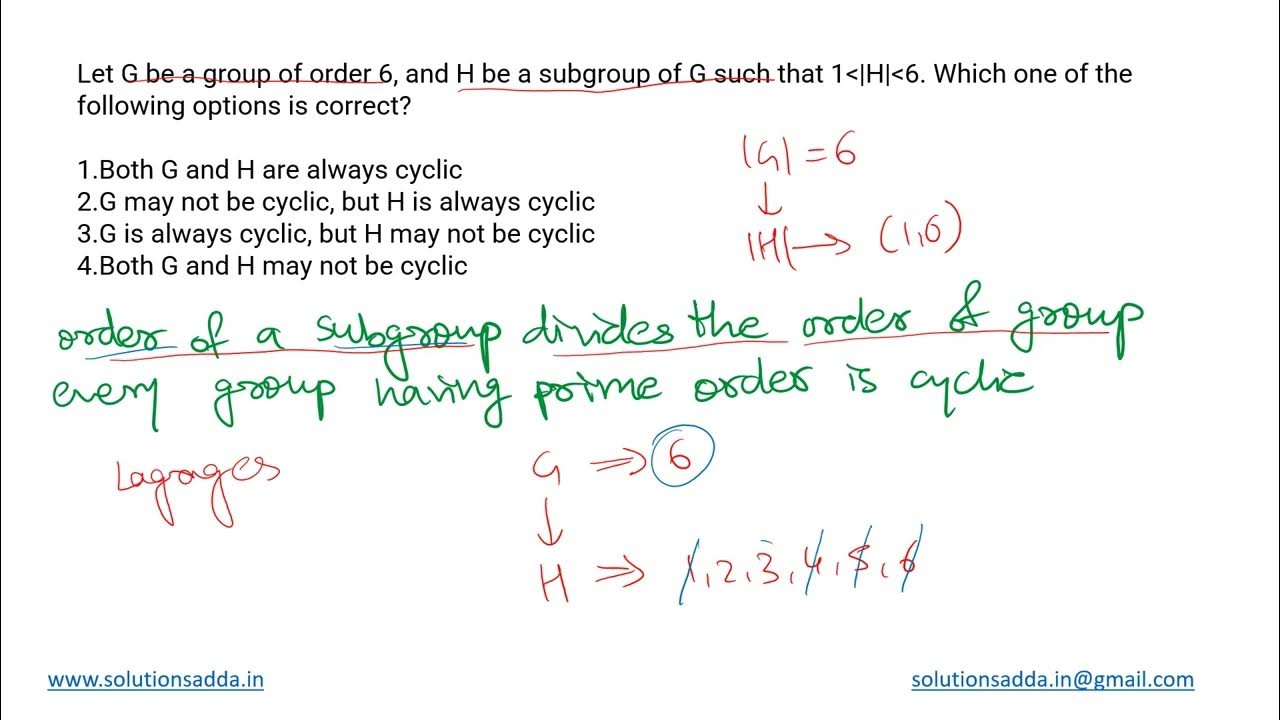 Let G be a group of order 6, and H be a subgroup of G such that 1<|H|<6. Which one of the
following options is correct?
1.Both G and H are always cyclic
2.G may not be cyclic, but H is always cyclic
3.G is always cyclic, but H may not be cyclic
4.Both G and H may not be cyclic
|G| = 6
↓
|H| → (1,6)
order of a subgroup divides the order of group
every group having prime order is cyclic
Lagrages
G ⇒ 6
↓
H ⇒ 1, 2, 3, 4, 5, 6
www.solutionsadda.in
solutionsadda.in@gmail.com